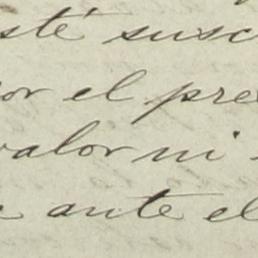 esté susc
or el pre
valor ni
ante el